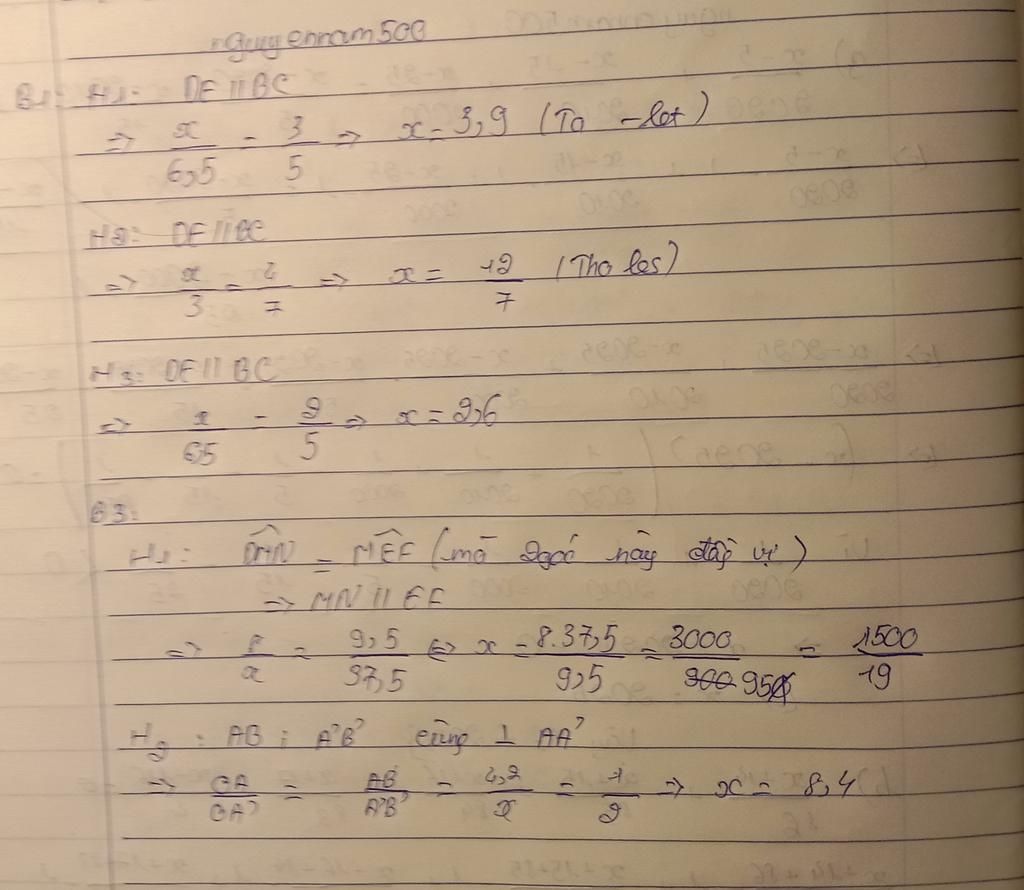 nguyennam500
B1: H1: DE // BC
=> x/6,5 = 3/5 => x = 3,9 (Ta - let)
H2: DE // BC
=> x/3 = 4/7 => x = 12/7 (Tha les)
H3: DE // BC
=> x/6,5 = 2/5 => x = 2,6
B3:
H1: DMN = MEF (mà 2 góc này đồng vị)
=> MN // EF
=> 8/x = 9,5/37,5 <=> x = 8.37,5/9,5 = 3000/95 = 1500/19
H2: AB; A'B' cùng ⊥ AA'
=> OA/OA' = AB/A'B' = 4,2/x = 1/2 => x = 8,4